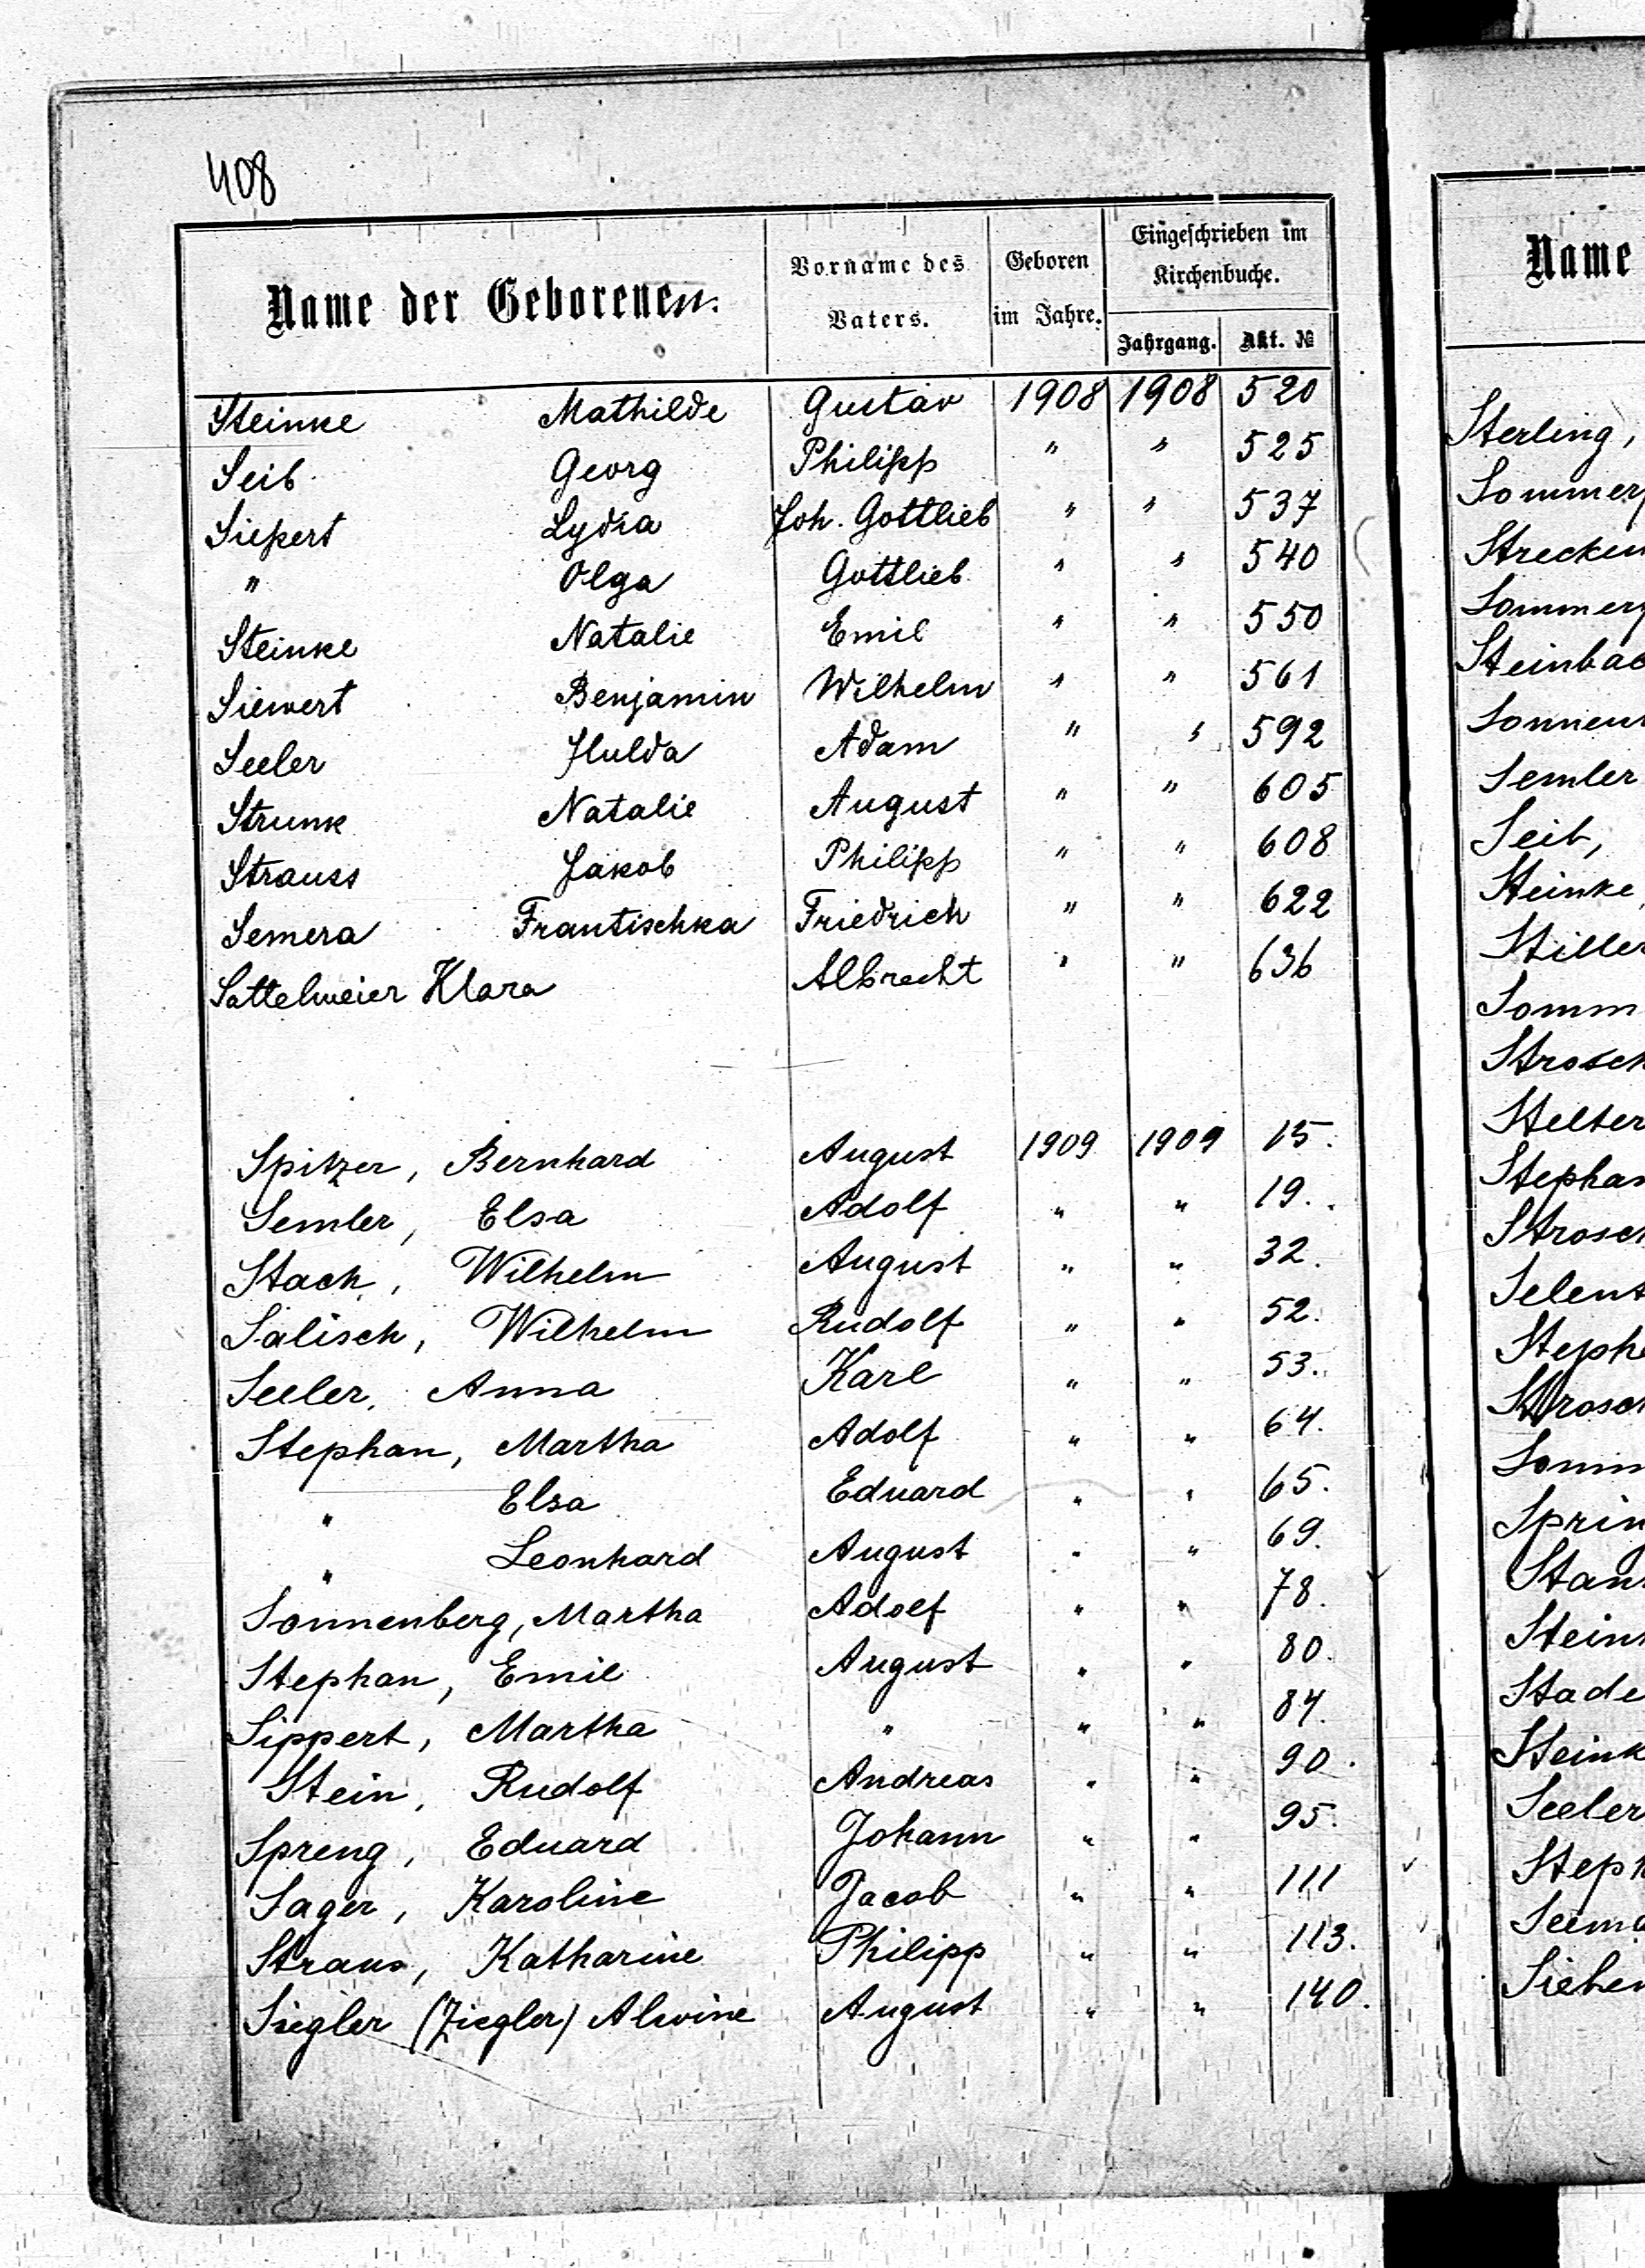 408
Name der Geborenen.
Vorname des Vaters.
Geboren im Jahre.
Eingeschrieben im Kirchenbuche.
Jahrgang. Akt. №
Steinke Mathilde Gustav 1908 1908 520
Seib Georg Philipp " " 525
Siepert Lydia Joh. Gottlieb " " 537
" Olga Gottlieb " " 540
Steinke Natalie Emil " " 550
Siewert Benjamin Wilhelm " " 561
Seeler Hulda Adam " " 592
Strunk Natalie August " " 605
Strauss Jakob Philipp " " 608
Semera Frantischka Friedrich " " 622
Sattelmeier Klara Albrecht " " 636
Spitzer, Bernhard August 1909 1909 15.
Semler, Elsa Adolf " " 19.
Stach, Wilhelm August " " 32.
Salisch, Wilhelm Rudolf " " 52.
Seeler, Anna Karl " " 53.
Stephan, Martha Adolf " " 64.
" Elsa Eduard " " 65.
" Leonhard August " " 69.
Sonnenberg, Martha Adolf " " 78.
Stephan, Emil August " " 80.
Sippert, Martha " " " 84.
Stein, Rudolf Andreas " " 90.
Spreng, Eduard Johann " " 95.
Sager, Karoline Jacob " " 111
Straus, Katharine Philipp " " 113.
Siegler (Ziegler) Alwine August " " 140.
Name
Sterling,
Sommer
Strecken
Sommer
Steinbac
Sonnen
Semler
Seib,
Steinke,
Stiller
Somm
Strosch
Stelter
Stephan
Strosch
Selent
Steph
Strosch
Somm
Sprin
Stan
Stein
Stade
Steink
Seeler
Steph
Seem
Sieber